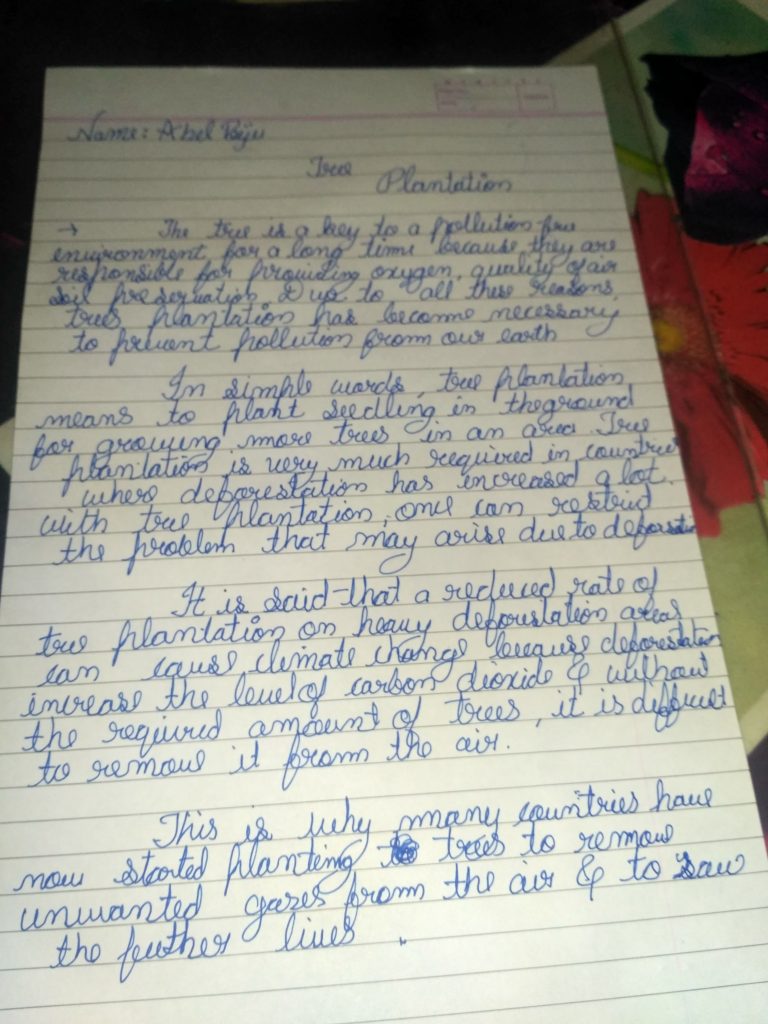 Name: Abel Biju
Tree
Plantation
→ The tree is a key to a pollution free
environment for a long time because they are
responsible for providing oxygen, quality of air
soil preservation & up to all these reasons,
trees plantation has become necessary
to prevent pollution from our earth
In simple words, tree plantation
means to plant seedling in theground
for growing more trees in an area. Tree
plantation is very much required in countries
where deforestation has increased a lot.
with tree plantation, one can restrict
the problem that may arise due to deforestation
It is said that a reduced rate of
tree plantation on heavy deforestation areas
can cause climate change because deforestation
increase the level of carbon dioxide & without
the required amount of trees, it is difficult
to remove it from the air.
This is why many countries have
now started planting trees to remove
unwanted gazes from the air & to save
the further lives.